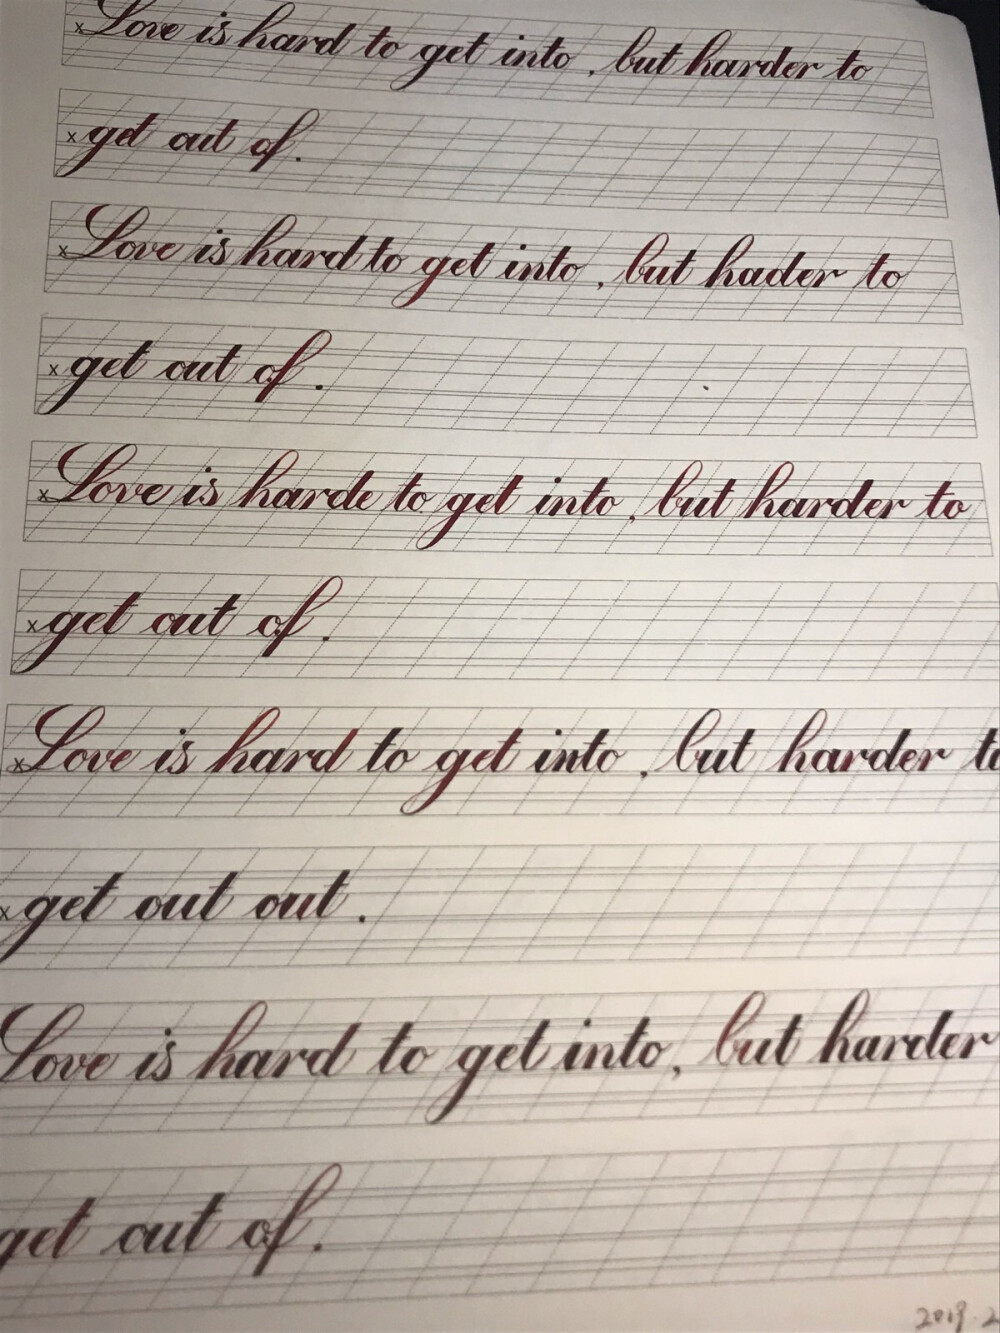 x Love is hard to get into , but harder to
x get out of.
x Love is hard to get into , but hader to
x get out of .
x Love is harde to get into , but harder to
x get out of .
x Love is hard to get into , but harder to
x get out out .
Love is hard to get into , but harder
get out of .
2019.2